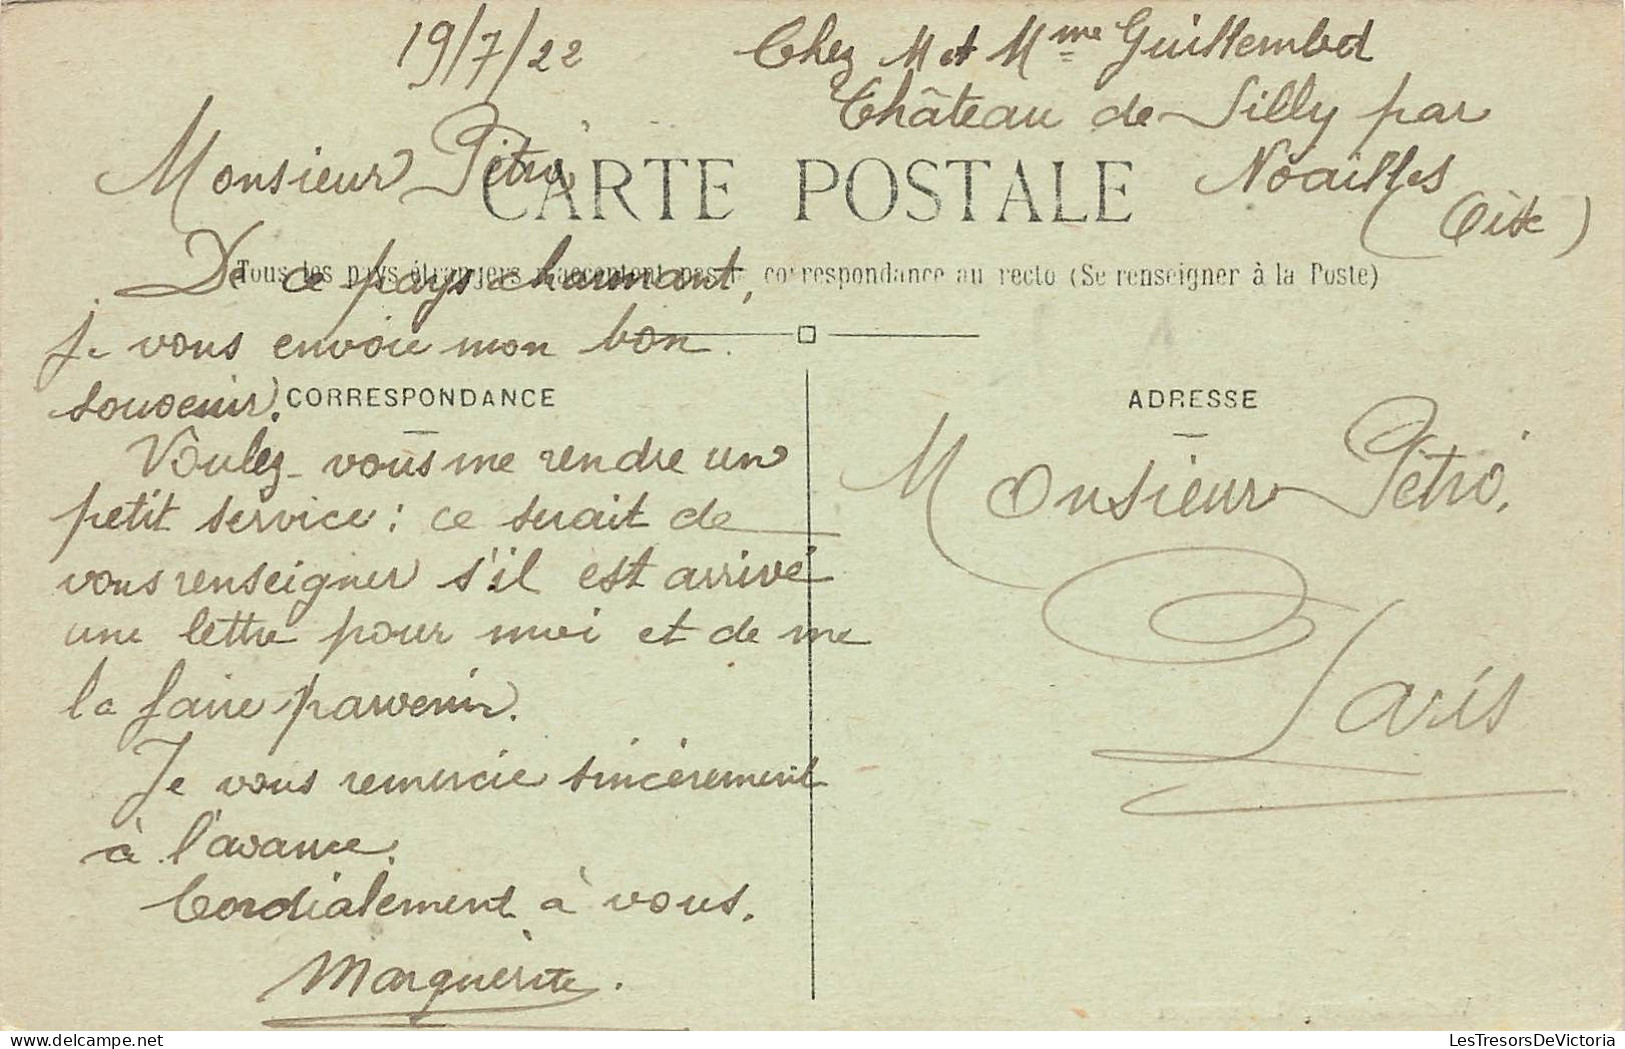 19/7/22
Chez M et Mme Guillembet
Château de Silly par
Noailles
(Oise)
Monsieur Pétro,
CARTE POSTALE
De ce pays charmant,
Tous les pays étrangers n'acceptent pas la correspondance au recto (Se renseigner à la Poste)
je vous envoie mon bon
souvenir.
CORRESPONDANCE
Voulez-vous me rendre un
petit service : ce serait de
vous renseigner s'il est arrivé
une lettre pour moi et de me
la faire parvenir.
Je vous remercie sincèrement
à l'avance.
Cordialement à vous.
Marguerite.
ADRESSE
Monsieur Pétro,
Paris
LesTresorsDeVictoria